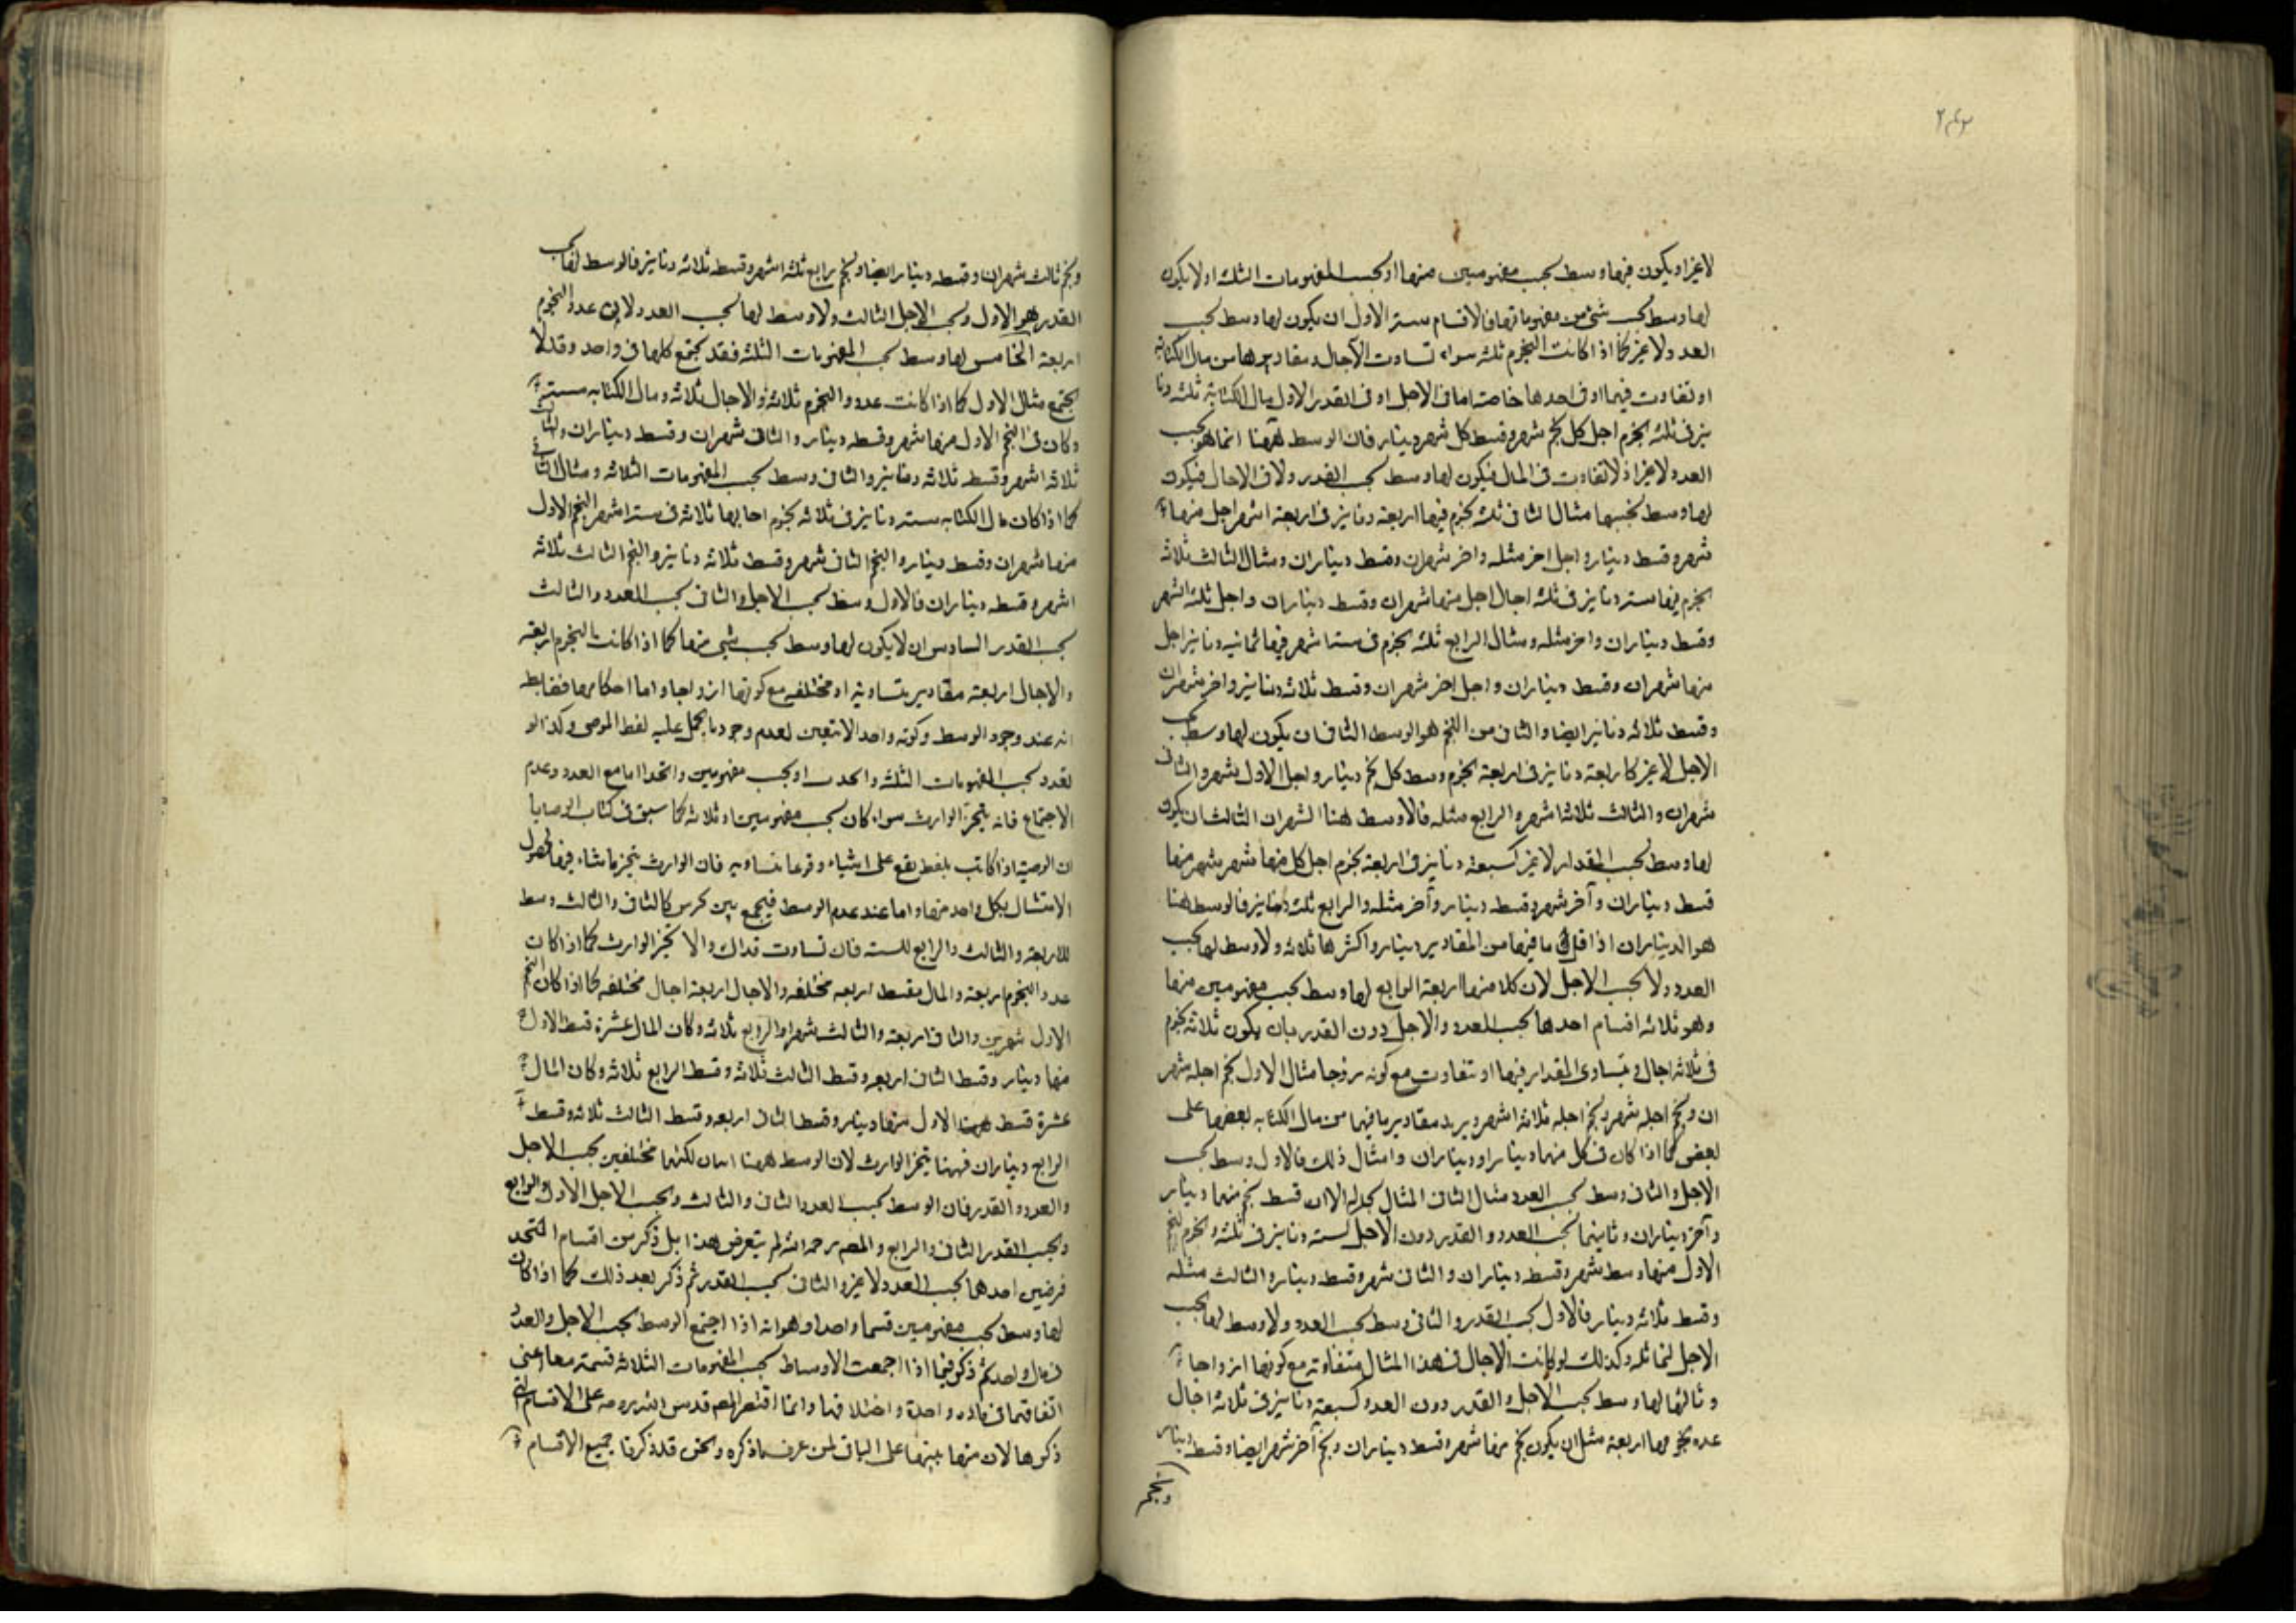 ٢٤٣
لا غير او يكون فيها وسط بحسب مفهومين منها او بحسب المفهومات الثلثة او لا يكون
لها وسط بحسب شئ من مفهوماتها فالاقسام ستة الاول ان يكون لها وسط بحسب
العدد لا غير كما اذا كانت النجوم ثلثة سواء تساوت الآجال ومقاديرها من مال الكتابة
او تفاوت فيهما او فى احدها خاصة اما فى الاجل او فى القدر الاول مال الكتابة ثلثة دنا
نير فى ثلثة نجوم اجل كل نجم شهر وقسط كل شهر دينار فان الوسط ههنا انما هو بحسب
العدد لا غير اذ لا تفاوت فى المال فيكون لها وسط بحسب القدر ولا فى الاجال فيكون
لها وسط بحسبها مثال الثانى ثلثة نجوم فيها اربعة دنانير فى اربعة اشهر اجل منها
شهر وقسط دينار واجل اخر مثله واخر شهران وقسط ديناران ومثال الثالث ثلاثة
نجوم فيها ستة دنانير فى ثلثة اجال اجل منها شهران وقسط ديناران واجل ثلثة اشهر
وقسط ديناران واخر مثله ومثال الرابع ثلثة نجوم فى ستة اشهر فيها ثمانية دنانير اجل
منها شهران وقسط ديناران واجل اخر شهران وقسط ثلاثة دنانير واخر شهران
وقسط ثلاثة دنانير ايضا والثانى من النجم هو الوسط الثانى ان يكون لها وسط بحسب
الاجل لا غير كاربعة دنانير فى اربعة نجوم وسط كل نجم دينار واجل الاول شهر والثانى
شهران والثالث ثلاثة اشهر والرابع مثله فالاوسط هنا الشهران الثالث ان يكون
لها وسط بحسب المقدار لا غير كسبعة دنانير فى اربعة نجوم اجل كل منها شهر شهر منها
قسط ديناران وآخر شهر وقسط دينار وآخر مثله والرابع ثلثة دنانير فالوسط هنا
هو الديناران اذا قل ما فيها من المقادير دينار واكثرها ثلاثة ولا وسط لها بحسب
العدد ولا بحسب الاجل لان كلا منها اربعة الرابع لها وسط بحسب مفهومين منها
وهو ثلاثة اقسام احدها بحسب العدد والاجل دون القدر بان يكون ثلاثة نجوم
فى ثلاثة اجال ويتساوى المقدار فيها او تتفاوت مع كونه زوجا مثال الاول نجم اجله شهر
ان ونجم اجله شهر ونجم اجله ثلاثة اشهر ويريد مقادير ما فيها من مال الكتابة بعضها على
بعض كما اذا كان فى كل منها دينار او ديناران وامثال ذلك فالاول وسط بحسب
الاجل والثانى وسط بحسب العدد مثال الثانى المثال بحاله الا ان قسط نجم منها دينار
وآخر ديناران وثانيها بحسب العدد والقدر دون الاجل كستة دنانير فى ثلثة نجوم النجم
الاول منها وسط شهر وقسط ديناران والثانى شهر وقسط دينار والثالث مثله
وقسط ثلاثة دينار فالاول بحسب القدر والثانى وسط بحسب العدد ولا وسط لها بحسب
الاجل لتماثله وكذلك لو كانت الآجال فى هذا المثال متفاوتة مع كونها ازواجا
وثالثها لها وسط بحسب الاجل والقدر دون العدد كسبعة دنانير فى ثلاثة اجال
عدد نجومها اربعة مثل ان يكون نجم منها شهر وقسط ديناران ونجم آخر شهر ايضا وقسط دينار
ونجم
ونجم ثالث شهران وقسطه دينار ايضا ونجم رابع ثلثة اشهر وقسط ثلاثة دنانير فالوسط لها بحسب
القدر هو الاول وبحسب الاجل الثالث ولا وسط لها بحسب العدد لان عدد النجوم
اربعة الخامس لها وسط بحسب المفهومات الثلثة فقد تجتمع كلها فى واحد وقد لا
تجتمع مثال الاول كما اذا كانت عدد النجوم ثلاثة والاجال ثلاثة ومال الكتابة ستة
وكان فى النجم الاول منها شهر وقسطه دينار والثانى شهران وقسط ديناران والثالث
ثلاثة اشهر وقسط ثلاثة دنانير والثانى وسط بحسب المفهومات الثلاثة ومثال الثانى
كما اذا كان مال الكتابة ستة دنانير فى ثلاثة نجوم اجالها ثلاثة فى ستة اشهر النجم الاول
منها شهران وقسط دينار والنجم الثانى شهر وقسط ثلاثة دنانير والنجم الثالث ثلاثة
اشهر وقسطه ديناران فالاول وسط بحسب الاجل والثانى بحسب العدد والثالث
بحسب القدر السادس ان لا يكون لها وسط بحسب شئ منها كما اذا كانت النجوم اربعة
والاجال اربعة مقادير متساوية او مختلفة مع كونها ازواجا واما احكامها فضابطه
انه عند وجود الوسط وكونه واحدا لا يتعين لعدم وجود ما يحمل عليه لفظ الموصى وكذا لو
تعدد بحسب المفهومات الثلثة واتحد او بحسب مفهومين واتحد اما مع العدد وعدم
الاجتماع فانه يتخير الوارث سواء كان بحسب مفهومين او ثلاثة كما سبق فى كتاب الوصايا
ان الوصية اذا كانت بلفظ يقع على اشياء وقوعا متساويه فان الوارث يتخير ما شاء فيها لحصول
الامتثال بكل واحد منها واما عند عدم الوسط فيجمع بين نجمين كالثانى والثالث وسط
للاربعة والثالث والرابع للستة فان تساوت فذاك والا تخير الوارث كما اذا كانت
عدد النجوم اربعة والمال بقسط اربعة مختلفه والاجال اربعة اجال مختلفه كما اذا كان النجم
الاول شهرين والثانى اربعة والثالث شهرا والرابع ثلاثة وكان المال عشرة قسط الاول
منها دينار وقسط الثانى اربعة وقسط الثالث ثلاثة وقسط الرابع ثلاثة وكان المال
عشرة قسط الاول منها دينار وقسط الثانى اربعة وقسط الثالث ثلاثة وقسط
الرابع ديناران فههنا يتخير الوارث لان الوسط ههنا اثنان لكنهما مختلفين بحسب الاجل
والعدد والقدر فان الوسط بحسب العدد الثانى والثالث وبحسب الاجل الاول والرابع
وبحسب القدر الثانى والرابع والمصم رحمه الله لم يتعرض لهذا بل ذكر من اقسام المتحد
فرضين احدهما بحسب العدد لا غير والثانى بحسب القدر ثم ذكر بعد ذلك كما اذا كان
لها وسط بحسب مفهومين قسما واحدا وهو انه اذا اجتمع الوسط بحسب الاجل والعدد
فى مال واحد ثم ذكر فيما اذا اجمعت الاوساط بحسب المفهومات الثلاثة قسمته معا اعنى
اتفاقها فى مادة واحدة واختلافها وانما اقتصر المصم قدس الله روحه على الاقسام التى
ذكرها لان منها ينبهها على الباقى لمن عرف ما ذكره ونحن قد ذكرنا جميع الاقسام